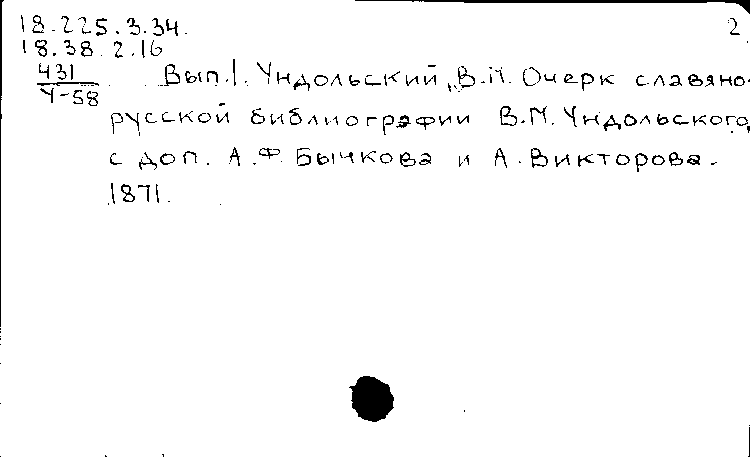 18.225.3.34. 2.
18.38.2.16
431 Вып.1. Ундольский, В.М. Очерк славяно-
У-58
русской библиографии В.М. Ундольского,
с доп. А.Ф. Бычкова и А. Викторова.
1871.